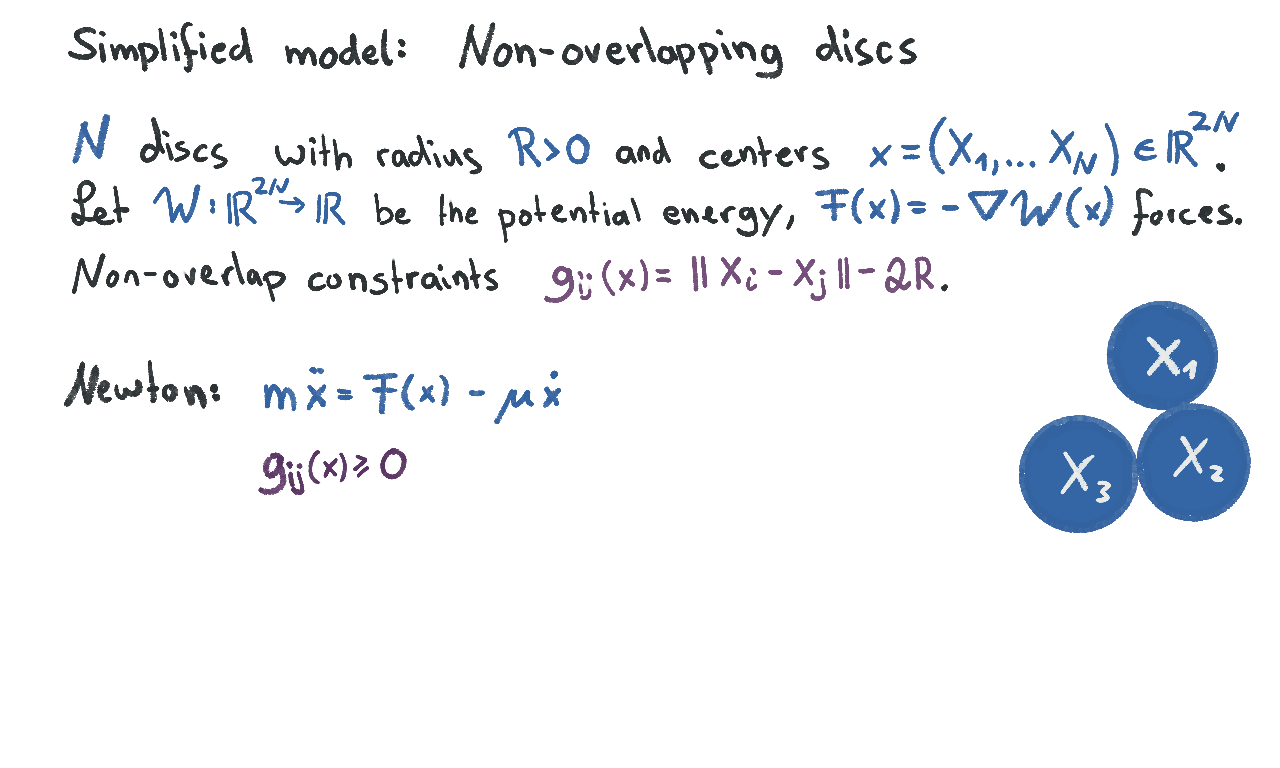 Simplified model: Non-overlapping discs
N discs with radius R>0 and centers x=(X₁,... X_N) ∈ ℝ²ᴺ.
Let W: ℝ²ᴺ→ ℝ be the potential energy, F(x)= -∇W(x) forces.
Non-overlap constraints g_ij(x)= ||X_i - X_j|| - 2R.
X₁
Newton: mẍ = F(x) - μẋ
X₂
X₃
g_ij(x) ≥ 0